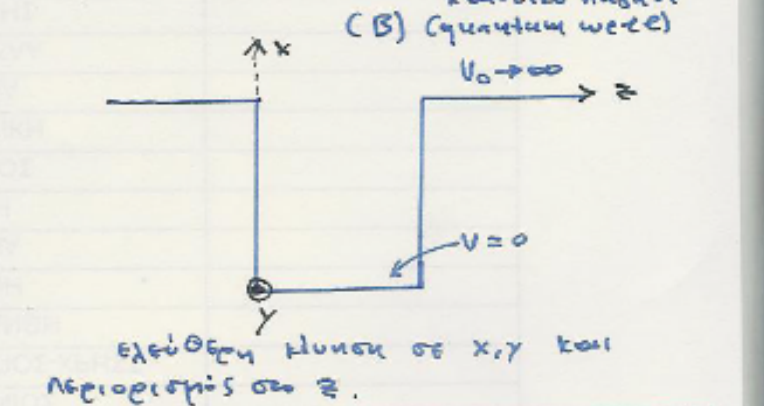 (B) (quantum well)
x
V₀→∞
z
V≃0
y
ελεύθερη κίνηση σε x,y και
περιορισμός στο z.